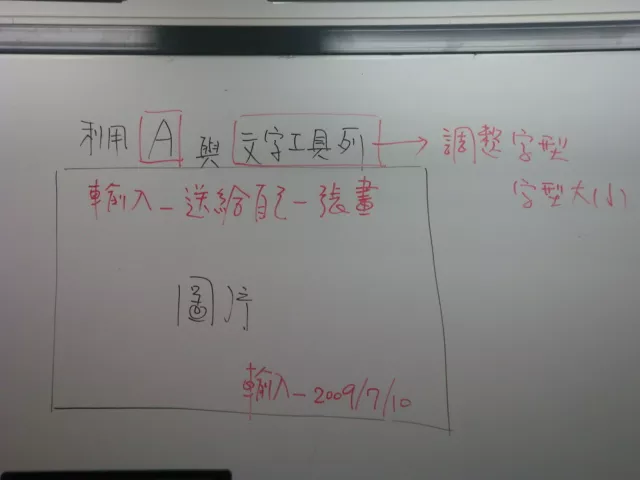 利用 A 與 文字工具列 → 調整字型
字型大小
輸入_送給自己一張畫
圖片
輸入_2009/7/10